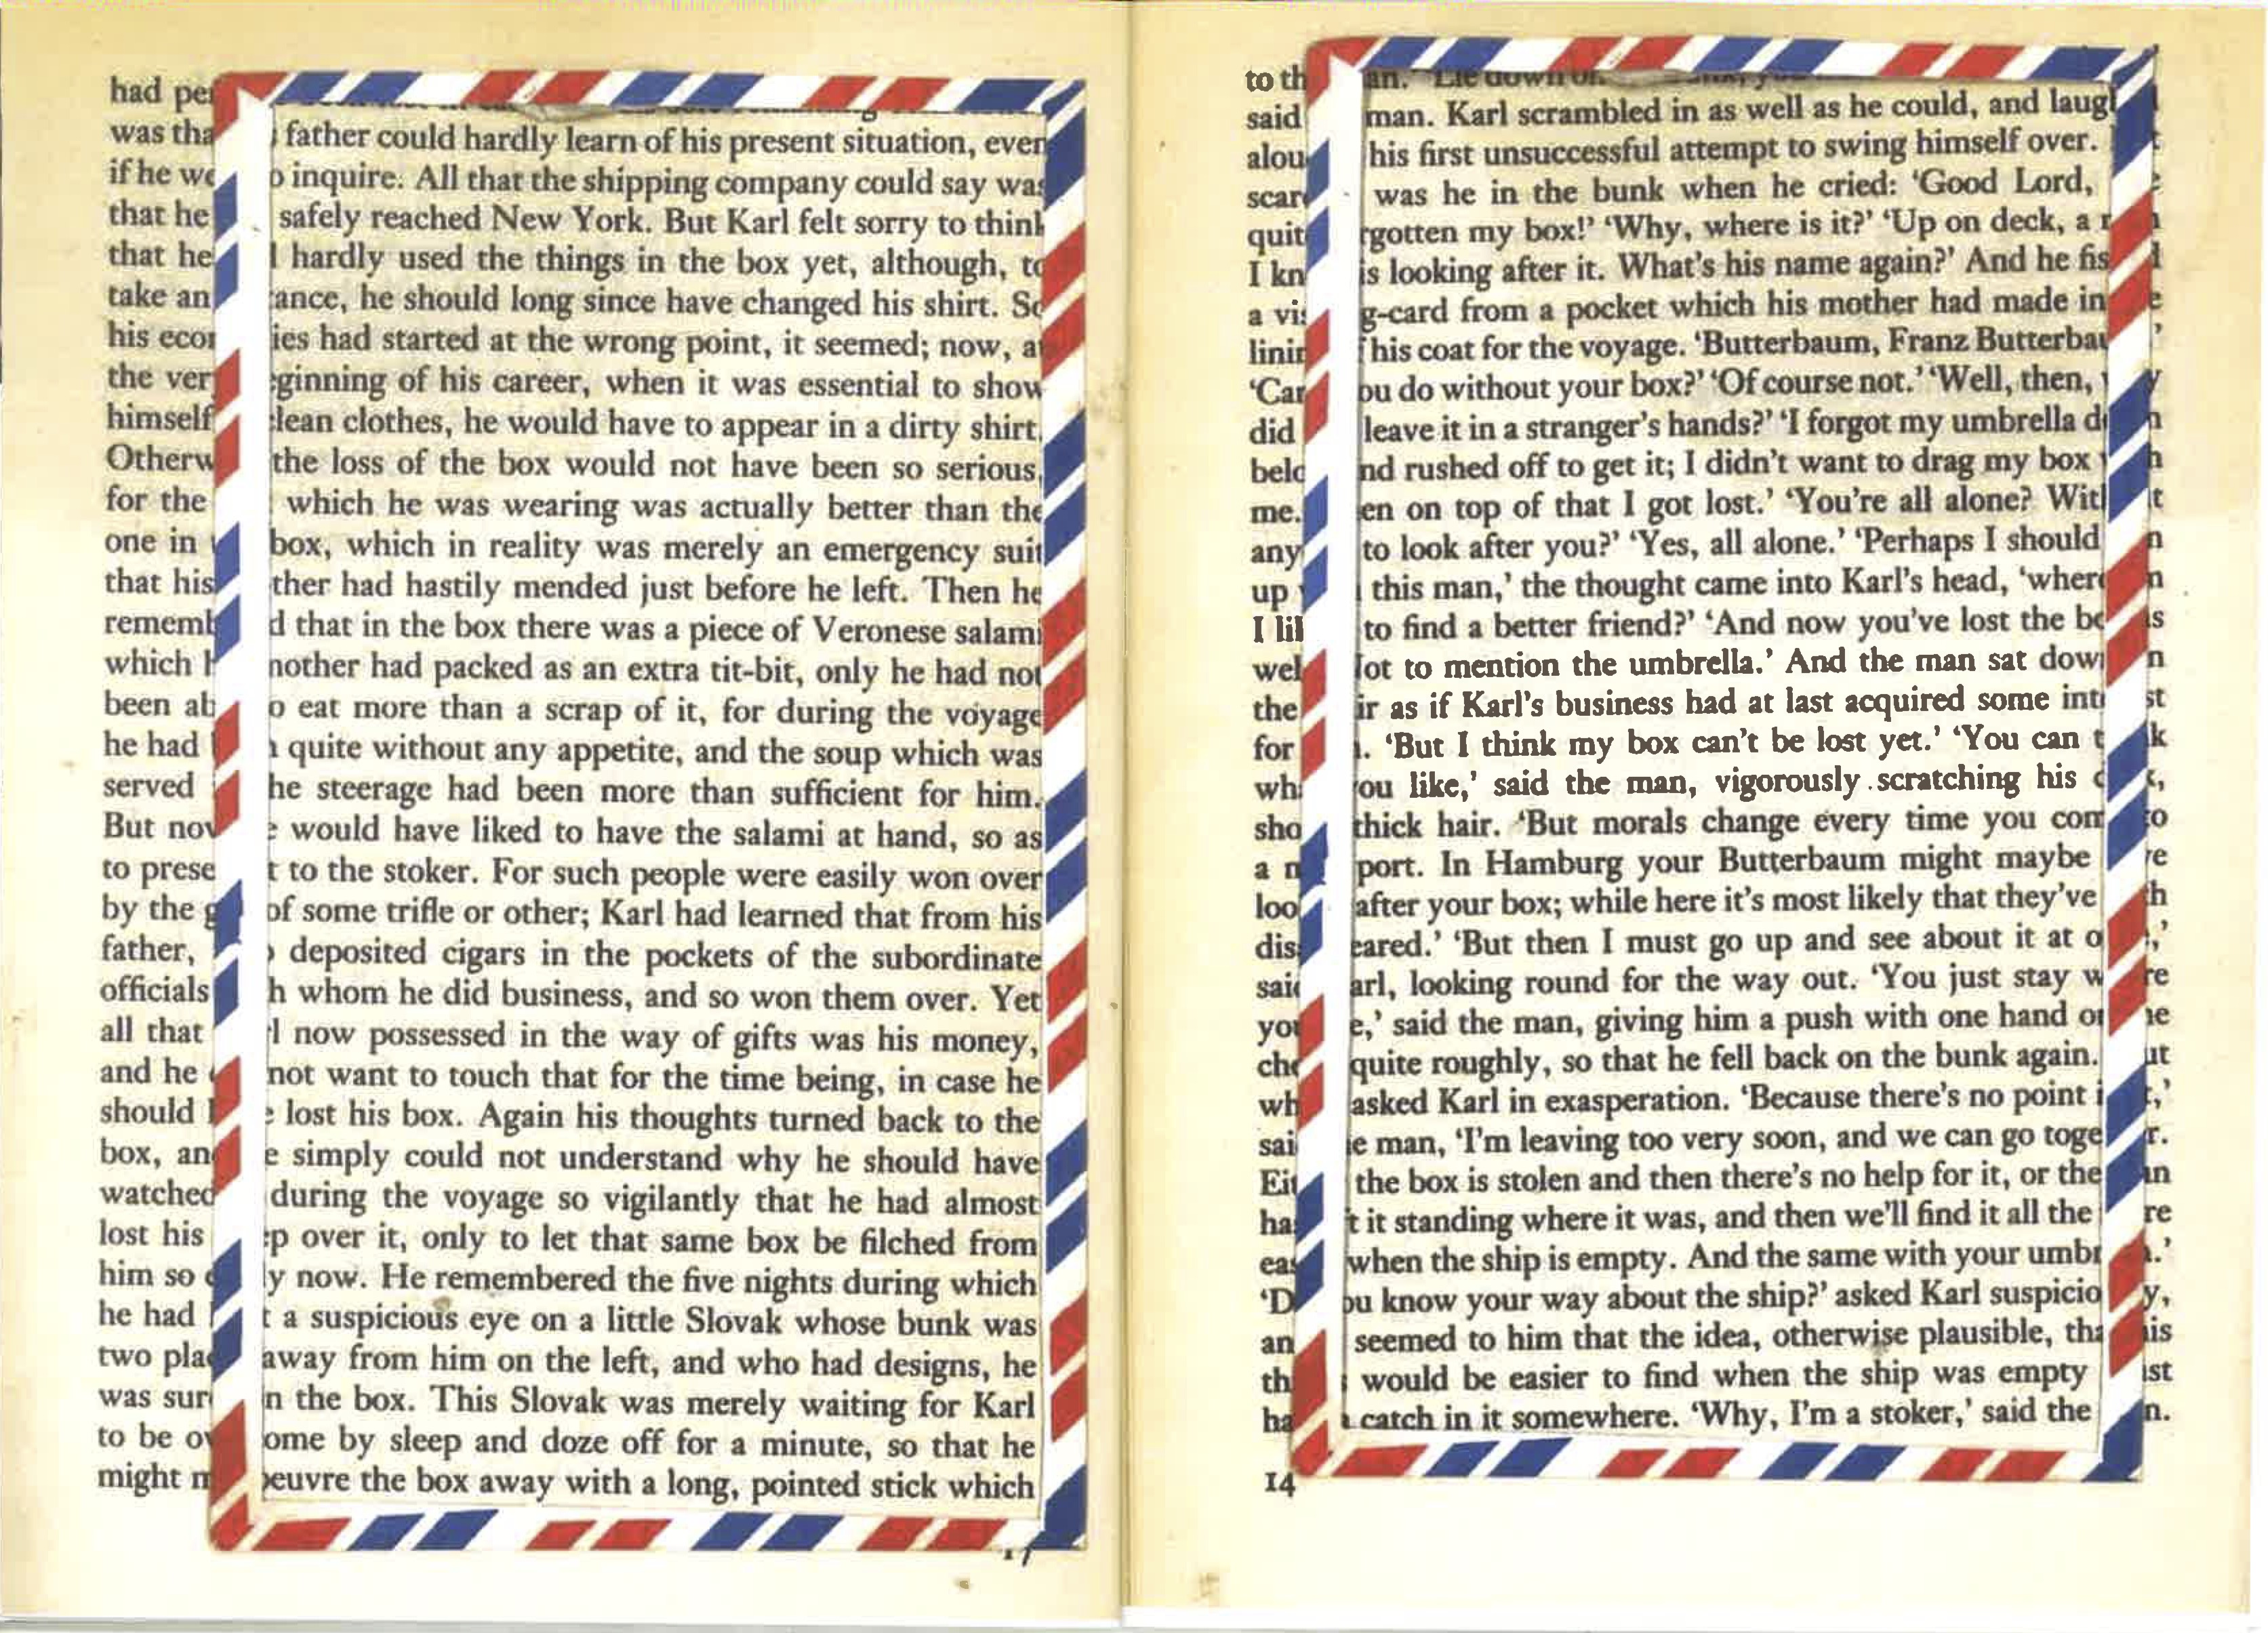 had per
was tha father could hardly learn of his present situation, even
if he we o inquire. All that the shipping company could say was
that he safely reached New York. But Karl felt sorry to think
that he hardly used the things in the box yet, although, to
take an ance, he should long since have changed his shirt. So
his econ ies had started at the wrong point, it seemed; now, at
the very ginning of his career, when it was essential to show
himself clean clothes, he would have to appear in a dirty shirt.
Otherw the loss of the box would not have been so serious,
for the which he was wearing was actually better than the
one in box, which in reality was merely an emergency suit
that his ther had hastily mended just before he left. Then he
rememb d that in the box there was a piece of Veronese salami
which h mother had packed as an extra tit-bit, only he had not
been ab o eat more than a scrap of it, for during the voyage
he had quite without any appetite, and the soup which was
served he steerage had been more than sufficient for him.
But now e would have liked to have the salami at hand, so as
to prese t to the stoker. For such people were easily won over
by the g of some trifle or other; Karl had learned that from his
father, deposited cigars in the pockets of the subordinate
officials h whom he did business, and so won them over. Yet
all that l now possessed in the way of gifts was his money,
and he not want to touch that for the time being, in case he
should e lost his box. Again his thoughts turned back to the
box, and e simply could not understand why he should have
watched during the voyage so vigilantly that he had almost
lost his ep over it, only to let that same box be filched from
him so ly now. He remembered the five nights during which
he had t a suspicious eye on a little Slovak whose bunk was
two plac away from him on the left, and who had designs, he
was sure n the box. This Slovak was merely waiting for Karl
to be ov ome by sleep and doze off for a minute, so that he
might m oeuvre the box away with a long, pointed stick which
to th an. 'Lie down on
said man. Karl scrambled in as well as he could, and laugh
alou his first unsuccessful attempt to swing himself over.
scar was he in the bunk when he cried: 'Good Lord,
quit rgotten my box!' 'Why, where is it?' 'Up on deck, a
I kn is looking after it. What's his name again?' And he fis d
a vis g-card from a pocket which his mother had made in e
linin f his coat for the voyage. 'Butterbaum, Franz Butterbau '
'Can ou do without your box?' 'Of course not.' 'Well, then, y
did leave it in a stranger's hands?' 'I forgot my umbrella d n
belo nd rushed off to get it; I didn't want to drag my box h
me. en on top of that I got lost.' 'You're all alone? With t
any to look after you?' 'Yes, all alone.' 'Perhaps I should n
up this man,' the thought came into Karl's head, 'where n
I lik to find a better friend?' 'And now you've lost the bo s
wel ot to mention the umbrella.' And the man sat down n
the ir as if Karl's business had at last acquired some inte st
for . 'But I think my box can't be lost yet.' 'You can t k
wha ou like,' said the man, vigorously scratching his d ,
sho thick hair. 'But morals change every time you com to
a n port. In Hamburg your Butterbaum might maybe ve
loo after your box; while here it's most likely that they've th
dis eared.' 'But then I must go up and see about it at o ,'
said arl, looking round for the way out. 'You just stay w re
you e,' said the man, giving him a push with one hand on he
che quite roughly, so that he fell back on the bunk again. ut
wh asked Karl in exasperation. 'Because there's no point i t,'
sai e man, 'I'm leaving too very soon, and we can go toge r.
Eit the box is stolen and then there's no help for it, or the an
has t it standing where it was, and then we'll find it all the re
eas when the ship is empty. And the same with your umbr a.'
'D ou know your way about the ship?' asked Karl suspicio y,
an seemed to him that the idea, otherwise plausible, tha his
th would be easier to find when the ship was empty ust
ha a catch in it somewhere. 'Why, I'm a stoker,' said the n.
14